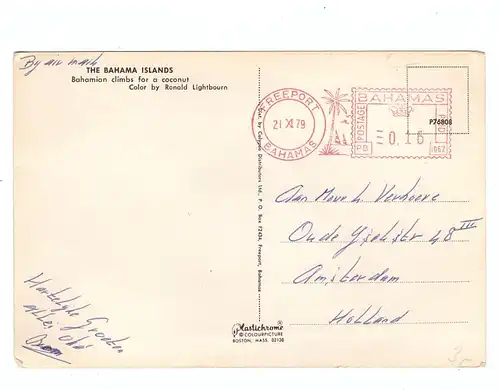 By air mail
THE BAHAMA ISLANDS
Bahamian climbs for a coconut
Color by Ronald Lightbourn
FREEPORT
21 XI 79
BAHAMAS
BAHAMAS
POSTAGE
PAID
0.16
P.B.
1862
P76808
Aan Mevr L Verhoeve
Oude IJselstr 48 III
Amsterdam
Holland
Hartelijke Groeten
Dist. by Calypso Distributors Ltd., P. O. Box F2434, Freeport, Bahamas
Plastichrome ®
© COLOURPICTURE
BOSTON, MASS. 02130
3,-